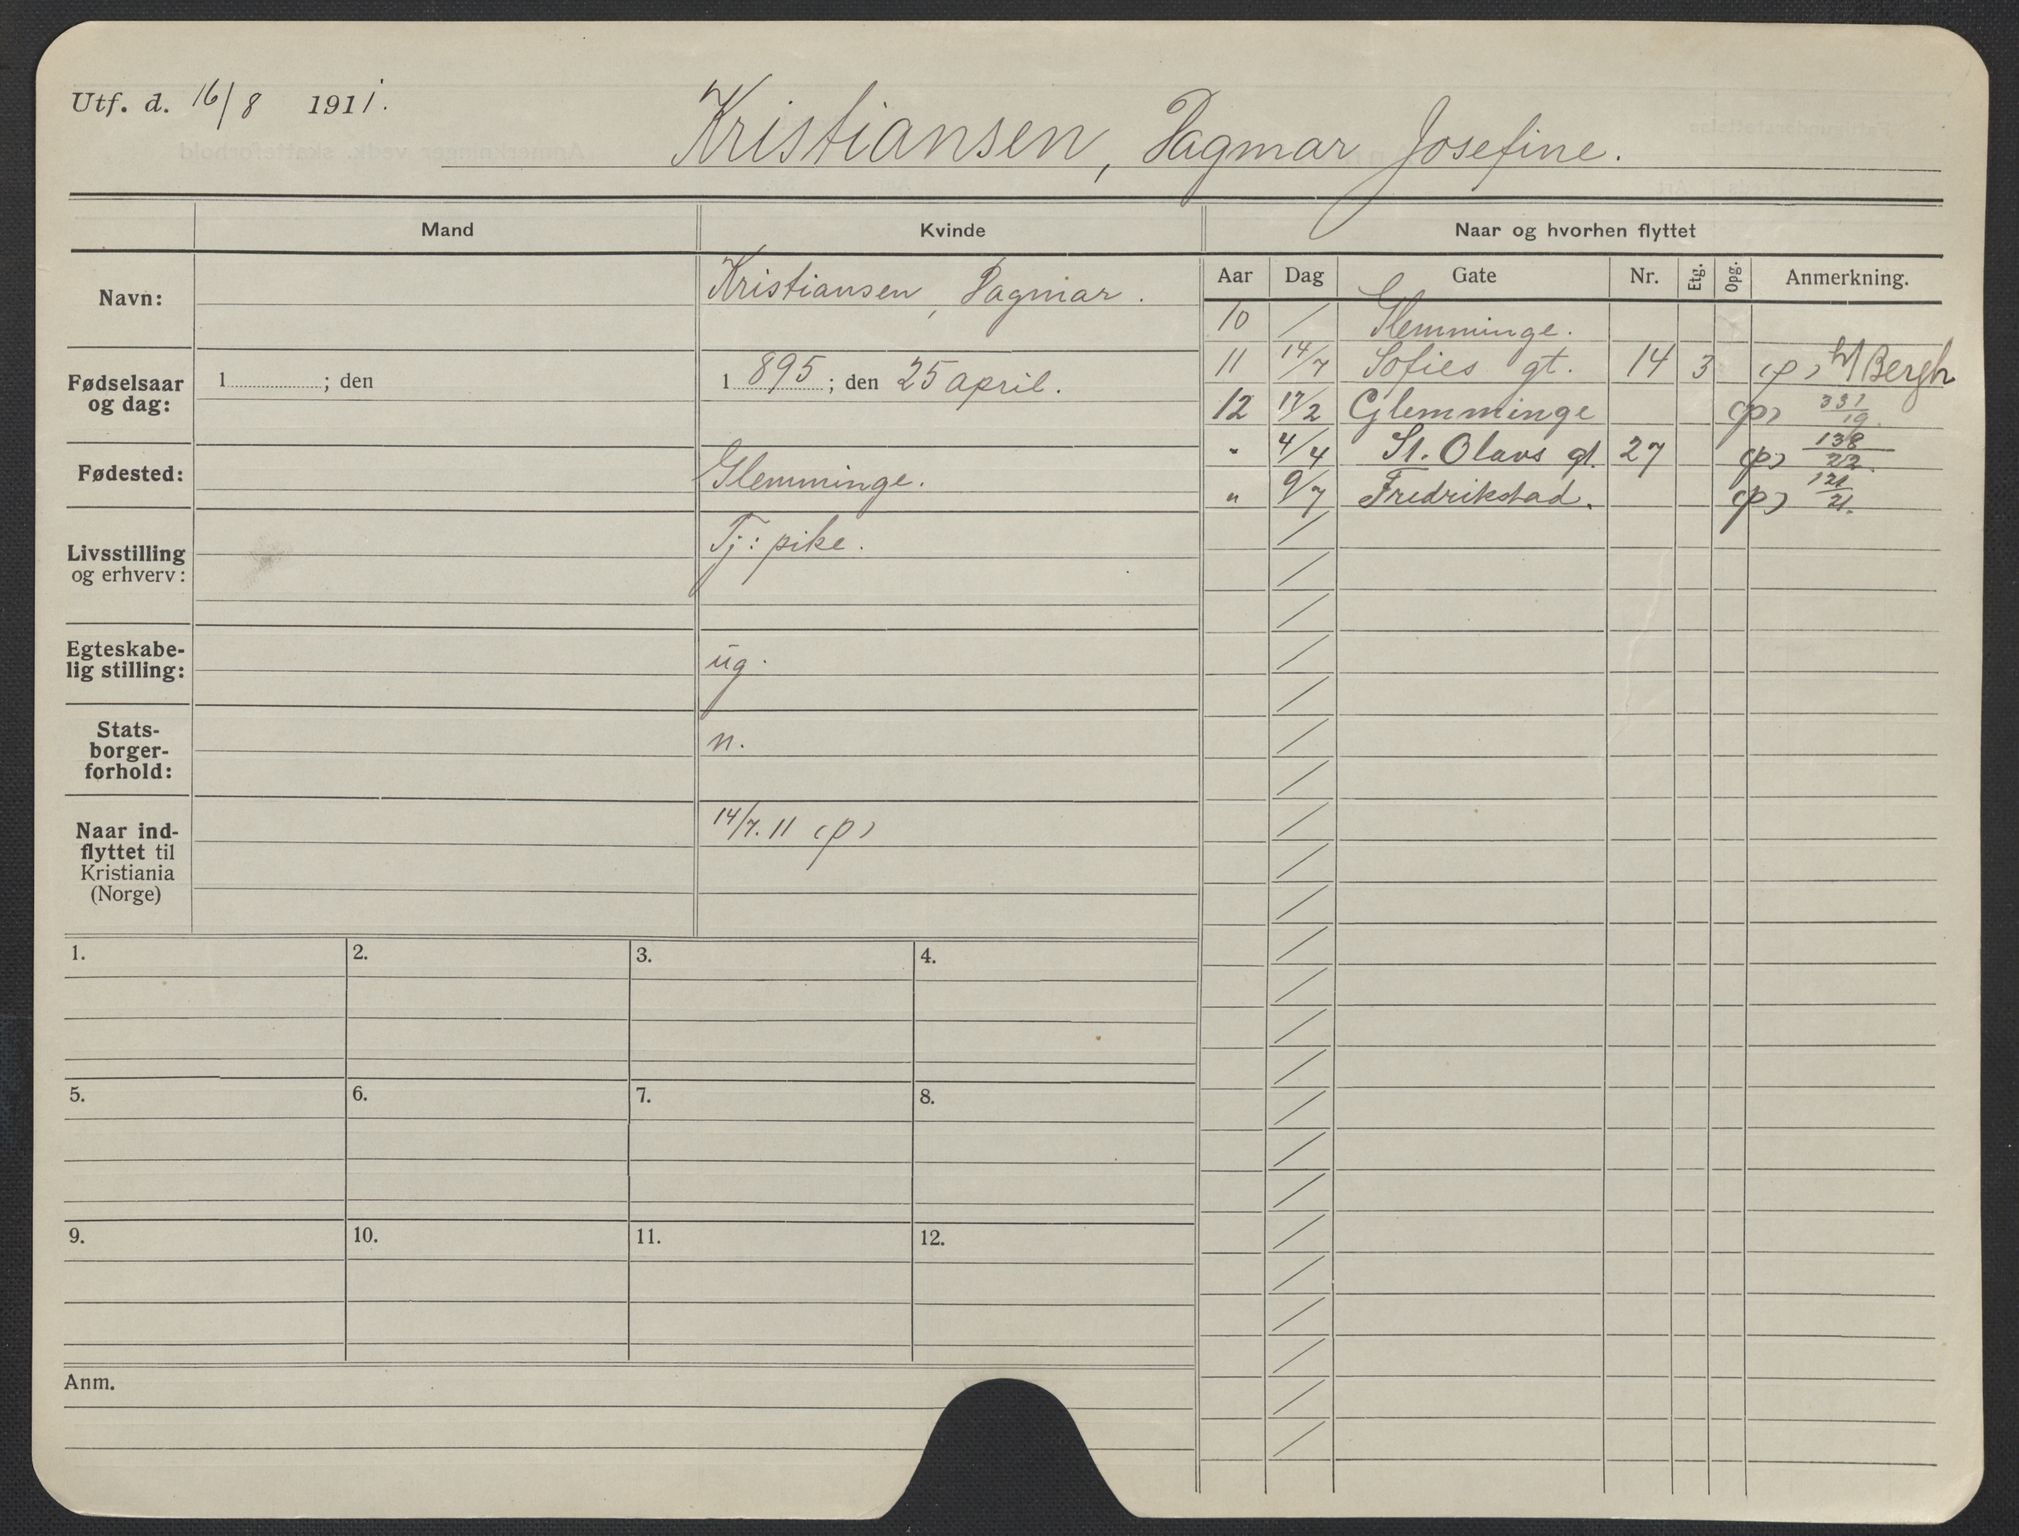 Utf. d. 16/8 1911.
Kristiansen, Dagmar Josefine.
Mand Kvinde Naar og hvorhen flyttet
Navn: Kristiansen, Dagmar.
Fødselsaar og dag: 1 ; den 1 895 ; den 25 april.
Fødested: Glemminge.
Livsstilling og erhverv: Tj: pike.
Egteskabe-
lig stilling: ug.
Stats-
borger-
forhold: n.
Naar ind-
flyttet til
Kristiania
(Norge) 14/7. 11 (p)
Aar Dag Gate Nr. Etg. Opg. Anmerkning.
10 / Glemminge.
11 14/7 Sofies gt. 14 3 (p) h/Bergh
12 17/2 Glemminge (p) 331/19.
" 4/4 St. Olavs gt. 27 (p) 138/22.
" 9/7 Fredrikstad. (p) 121/21.
1. 2. 3. 4.
5. 6. 7. 8.
9. 10. 11. 12.
Anm.